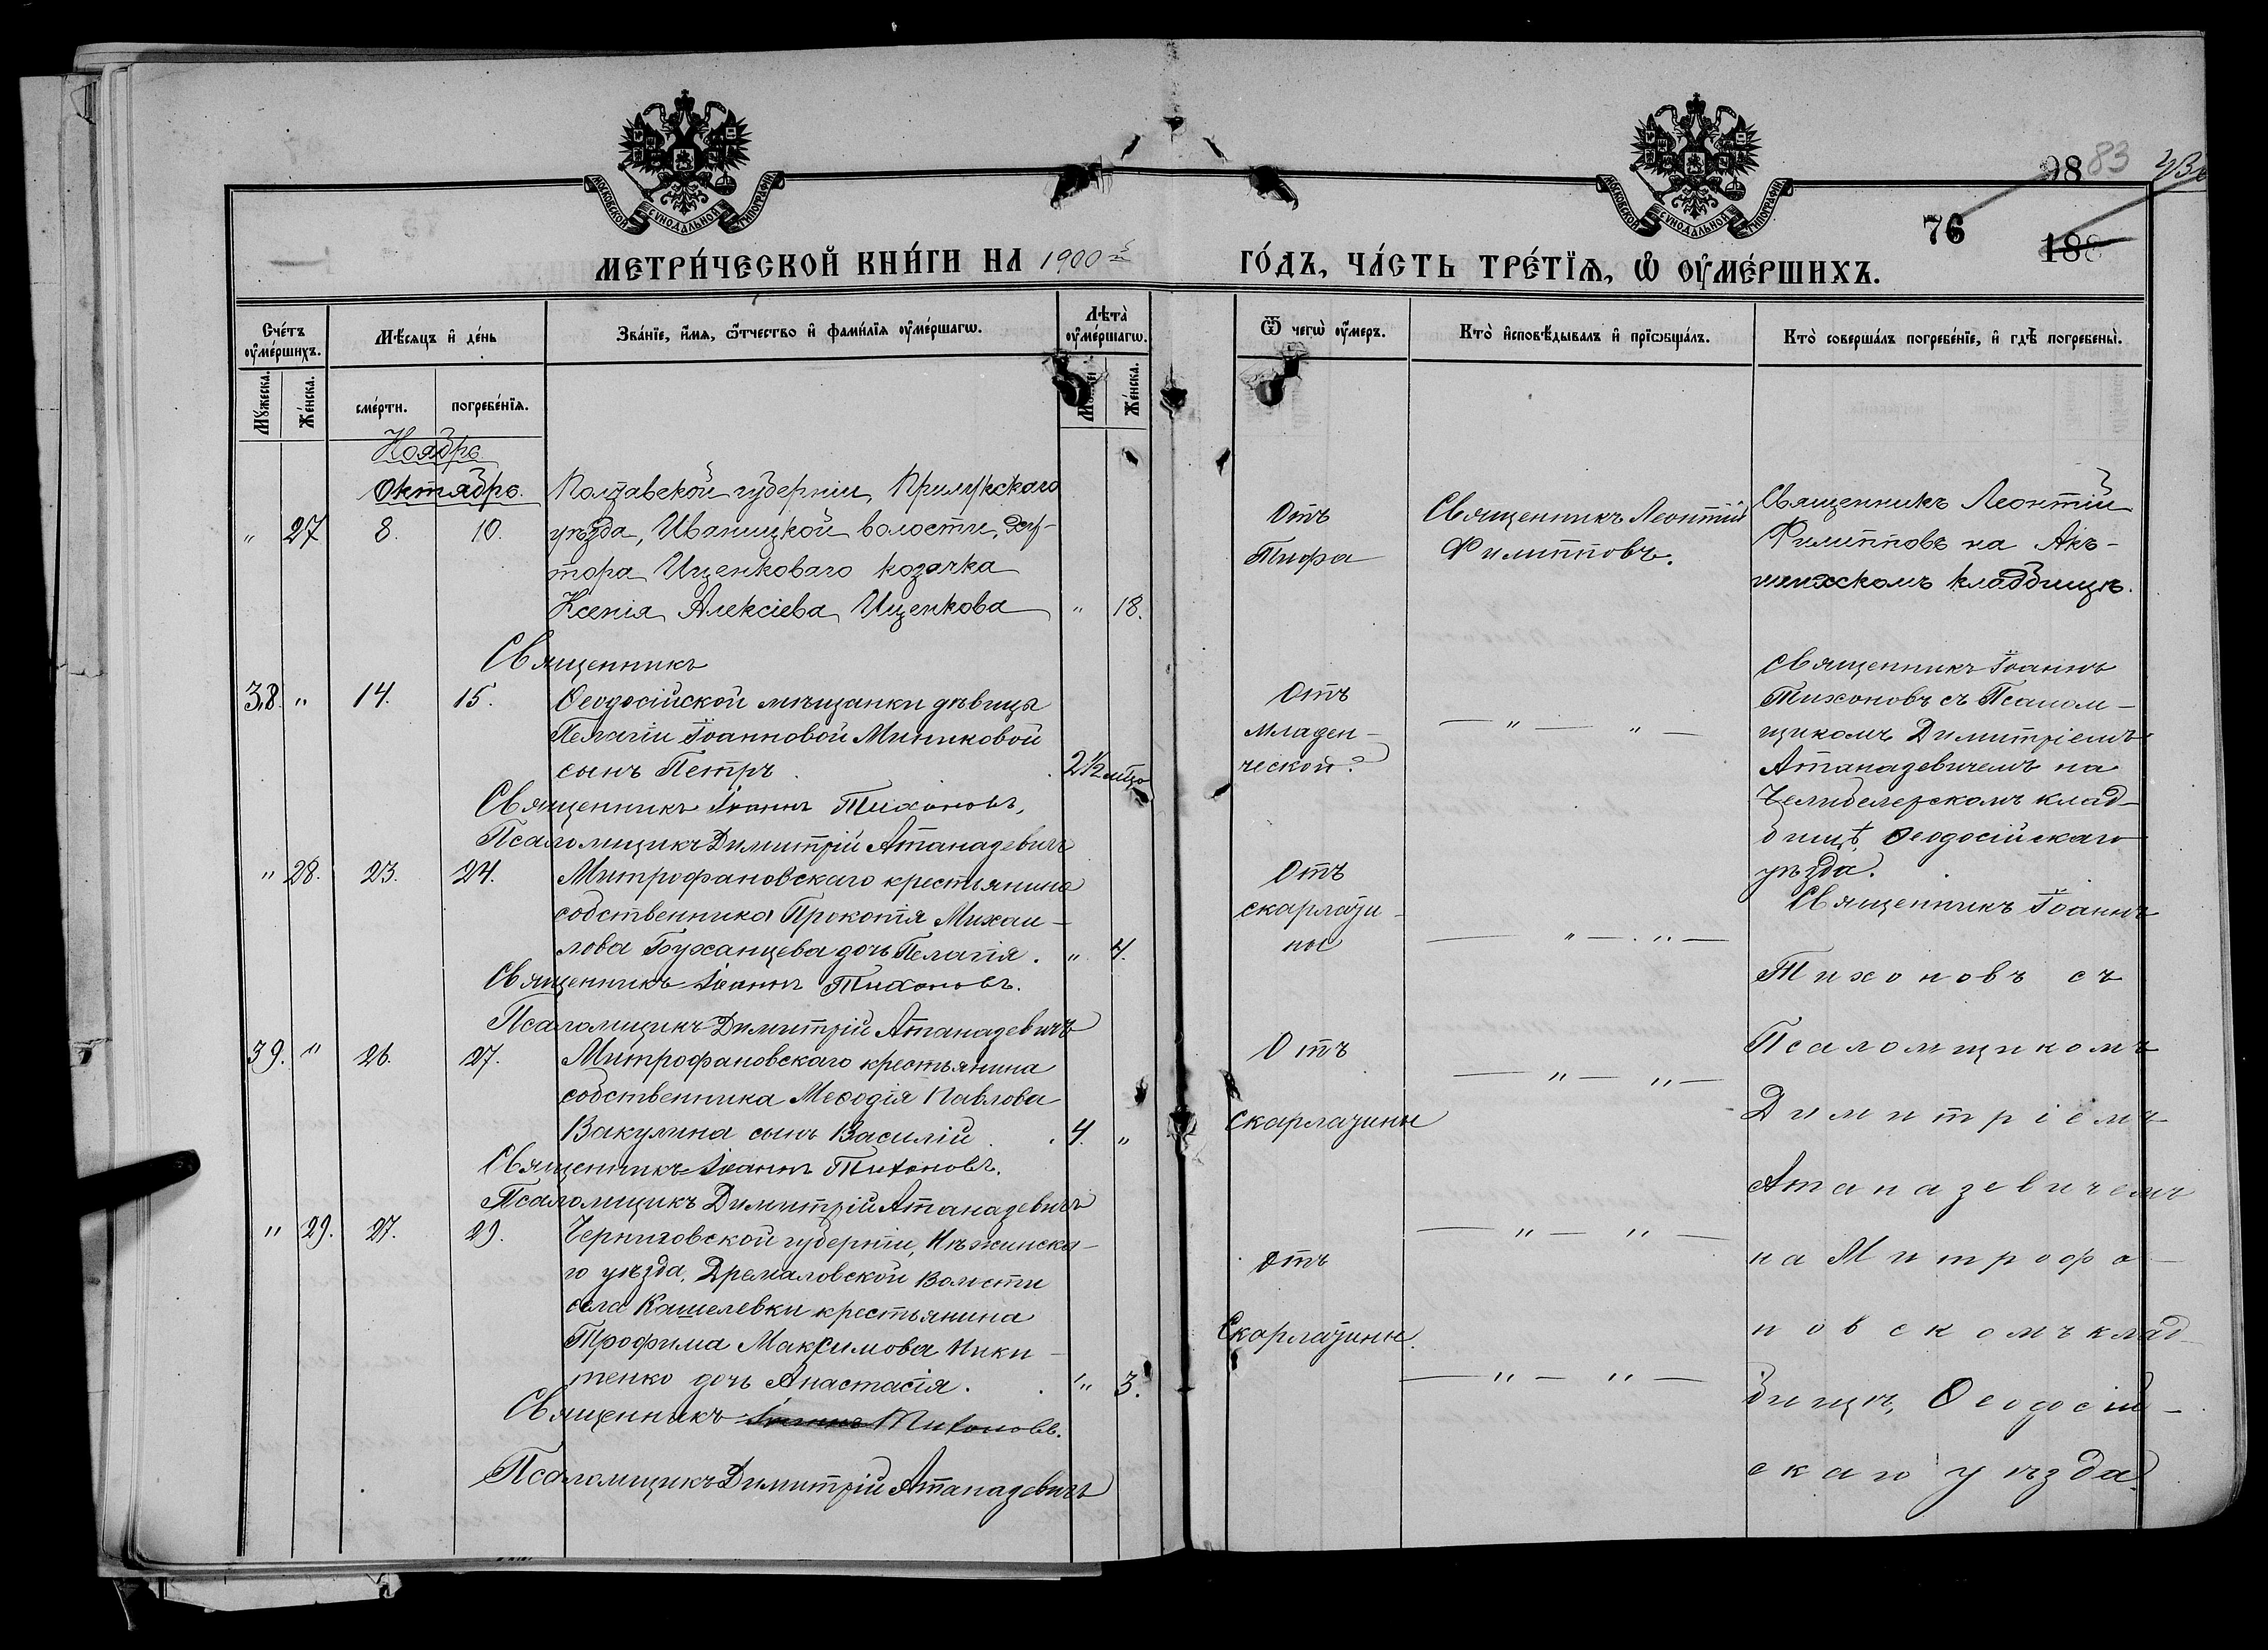 МОСКОВСКОЙ СѴНОДАЛЬНОЙ ТИПОГРАФІИ
МОСКОВСКОЙ СѴНОДАЛЬНОЙ ТИПОГРАФІИ
98 83
76
188
МЕТРИ́ЧЕСКОЙ КНИ́ГИ НА 1900й
ГО́ДЪ, ЧА́СТЬ ТРЕ́ТІѦ, Ѡ҆ ОУ҆МЕ́РШИХЪ.
Сче́тъ оу҆ме́ршихъ.
Мѣ́сяцъ и҆ де́нь
Зва́нїе, и҆́мя, ѻ҆́тчество и҆ фами́лїя оу҆ме́ршагѡ.
Лѣта̀ оу҆ме́ршагѡ.
Ѿ чегѡ̀ оу҆́меръ.
Кто̀ и҆сповѣ́дывалъ и҆ прїѡбща́лъ.
Кто̀ соверша́лъ погребе́нїе, и҆ гдѣ̀ погребены̀.
Мꙋ́жеска.
Же́нска.
сме́рти.
погребе́нїя.
Же́нска.
Ноябрь
Октябрь.
Полтавской губерніи, Прилукскаго
" 27 8. 10. уѣзда, Иваницкой волости, ху-
тора Ищенкова козачка
Ксенія Алексіева Ищенкова " 18.
Отъ
Тифа
Священникъ Леонтій
Филипповъ.
Священникъ Леонтій
Филипповъ на Акъ-
кладбищѣ.
Священникъ
38. " 14. 15. Ѳеодосійской мѣщанки дѣвицы
Пелагіи Іоанновой Миниковой
сынъ Петръ. 2½ мѣс
Отъ
младен-
ческой.
— " — " —
Священникъ Іоаннъ
Тихоновъ съ Псалом-
щикомъ Димитріемъ
Атаназевичемъ на
клад-
бищѣ, Ѳеодосійскаго
уѣзда.
Священникъ Іоаннъ Тихоновъ.
Псаломщикъ Димитрій Атаназевичъ
" 28. 23. 24. Митрофановскаго крестьянина
собственника Прокопія Михаи-
лова Буханцева дочь Пелагія. " 4.
Отъ
скарлати-
ны
— " — " —
Священникъ Іоаннъ
Тихоновъ съ
Псаломщикомъ
Димитріемъ
Атаназевичемъ
на Митрофа-
новскомъ клад-
бищѣ, Ѳеодосій-
скаго уѣзда.
Священникъ Іоаннъ Тихоновъ.
Псаломщикъ Димитрій Атаназевичъ
39. " 26. 27. Митрофановскаго крестьянина
собственника Меѳодія Павлова
Вакулина сынъ Василій. 4. "
Отъ
скарлатины
— " — " —
Священникъ Іоаннъ Тихоновъ.
Псаломщикъ Димитрій Атаназевичъ
" 29. 27. 29. Черниговской губерніи, Нѣжинска-
го уѣзда, Дремаловской волости
села Кашелевки крестьянина
Трофима Максимова Ники-
тенко дочь Анастасія. " 3.
отъ
Скарлатины.
— " — " —
— " — " —
Священникъ Іоаннъ Тихоновъ.
Псаломщикъ Димитрій Атаназевичъ